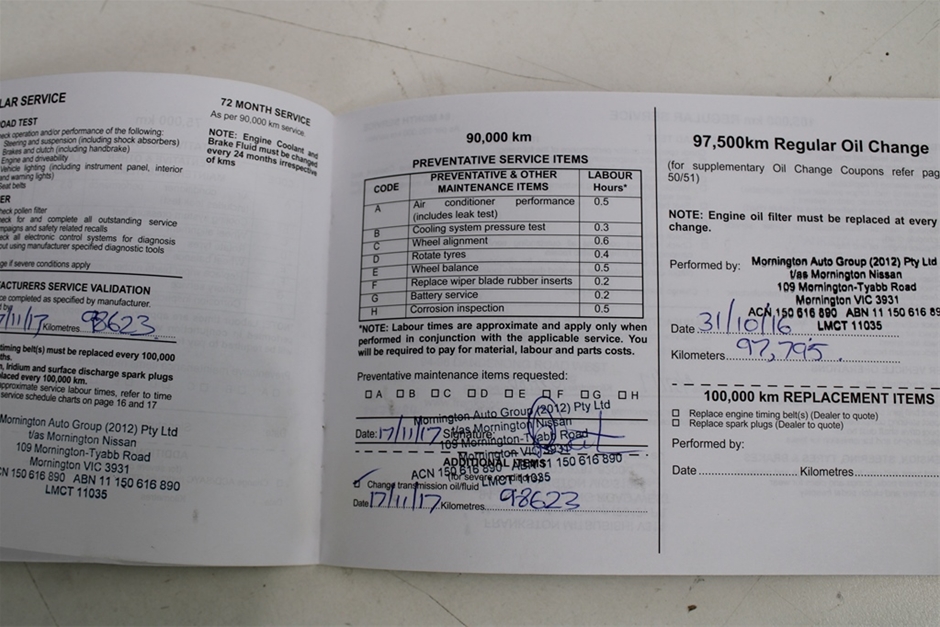 LAR SERVICE
OAD TEST
eck operation and/or performance of the following:
Steering and suspension (including shock absorbers)
Brakes and clutch (including handbrake)
Engine and driveability
Vehicle lighting (including instrument panel, interior
and warning lights)
Seat belts
ER
heck pollen filter
heck for and complete all outstanding service
mpaigns and safety related recalls
eck all electronic control systems for diagnosis
out using manufacturer specified diagnostic tools
ge if severe conditions apply
FACTURERS SERVICE VALIDATION
ce completed as specified by manufacturer.
d by
7/11/17 Kilometres 98623
timing belt(s) must be replaced every 100,000
ths.
, Iridium and surface discharge spark plugs
placed every 100,000 km.
approximate service labour times, refer to time
service schedule charts on page 16 and 17
Mornington Auto Group (2012) Pty Ltd
t/as Mornington Nissan
109 Mornington-Tyabb Road
Mornington VIC 3931
CN 150 616 890 ABN 11 150 616 890
LMCT 11035
72 MONTH SERVICE
As per 90,000 km service.
NOTE: Engine Coolant and
Brake Fluid must be changed
every 24 months irrespective
of kms
90,000 km
PREVENTATIVE SERVICE ITEMS
CODE PREVENTATIVE & OTHER MAINTENANCE ITEMS LABOUR Hours*
A Air conditioner performance (includes leak test) 0.5
B Cooling system pressure test 0.3
C Wheel alignment 0.6
D Rotate tyres 0.4
E Wheel balance 0.5
F Replace wiper blade rubber inserts 0.2
G Battery service 0.2
H Corrosion inspection 0.5
*NOTE: Labour times are approximate and apply only when
performed in conjunction with the applicable service. You
will be required to pay for material, labour and parts costs.
Preventative maintenance items requested:
A B C D E F G H
Mornington Auto Group (2012) Pty Ltd
t/as Mornington Nissan
Date: 17/11/17 Signature:
109 Mornington-Tyabb Road
Mornington VIC 3931
ADDITIONAL ITEMS
ACN 150 616 890 ABN 11 150 616 890
(for severe conditions)
LMCT 11035
Change transmission oil/fluid
Date 17/11/17 Kilometres 98623
97,500km Regular Oil Change
(for supplementary Oil Change Coupons refer pag
50/51)
NOTE: Engine oil filter must be replaced at every
change.
Performed by: Mornington Auto Group (2012) Pty Ltd
t/as Mornington Nissan
109 Mornington-Tyabb Road
Mornington VIC 3931
ACN 150 616 890 ABN 11 150 616 89
Date 31/10/16 LMCT 11035
Kilometers 97,795.
100,000 km REPLACEMENT ITEMS
Replace engine timing belt(s) (Dealer to quote)
Replace spark plugs (Dealer to quote)
Performed by:
Date Kilometres